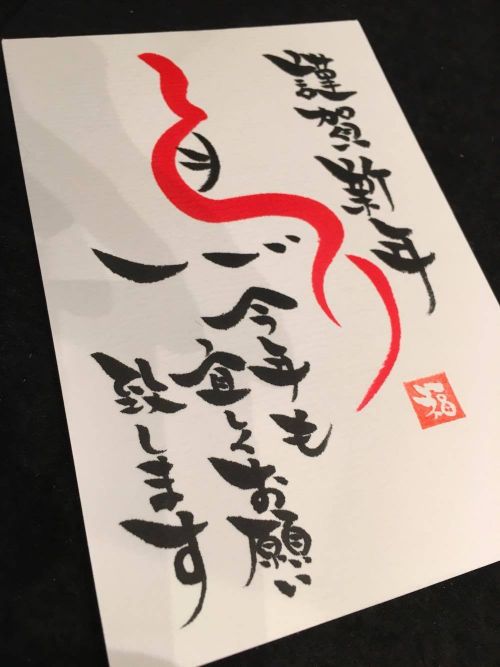 謹賀新年
今年も
宜しくお願い
致します
福